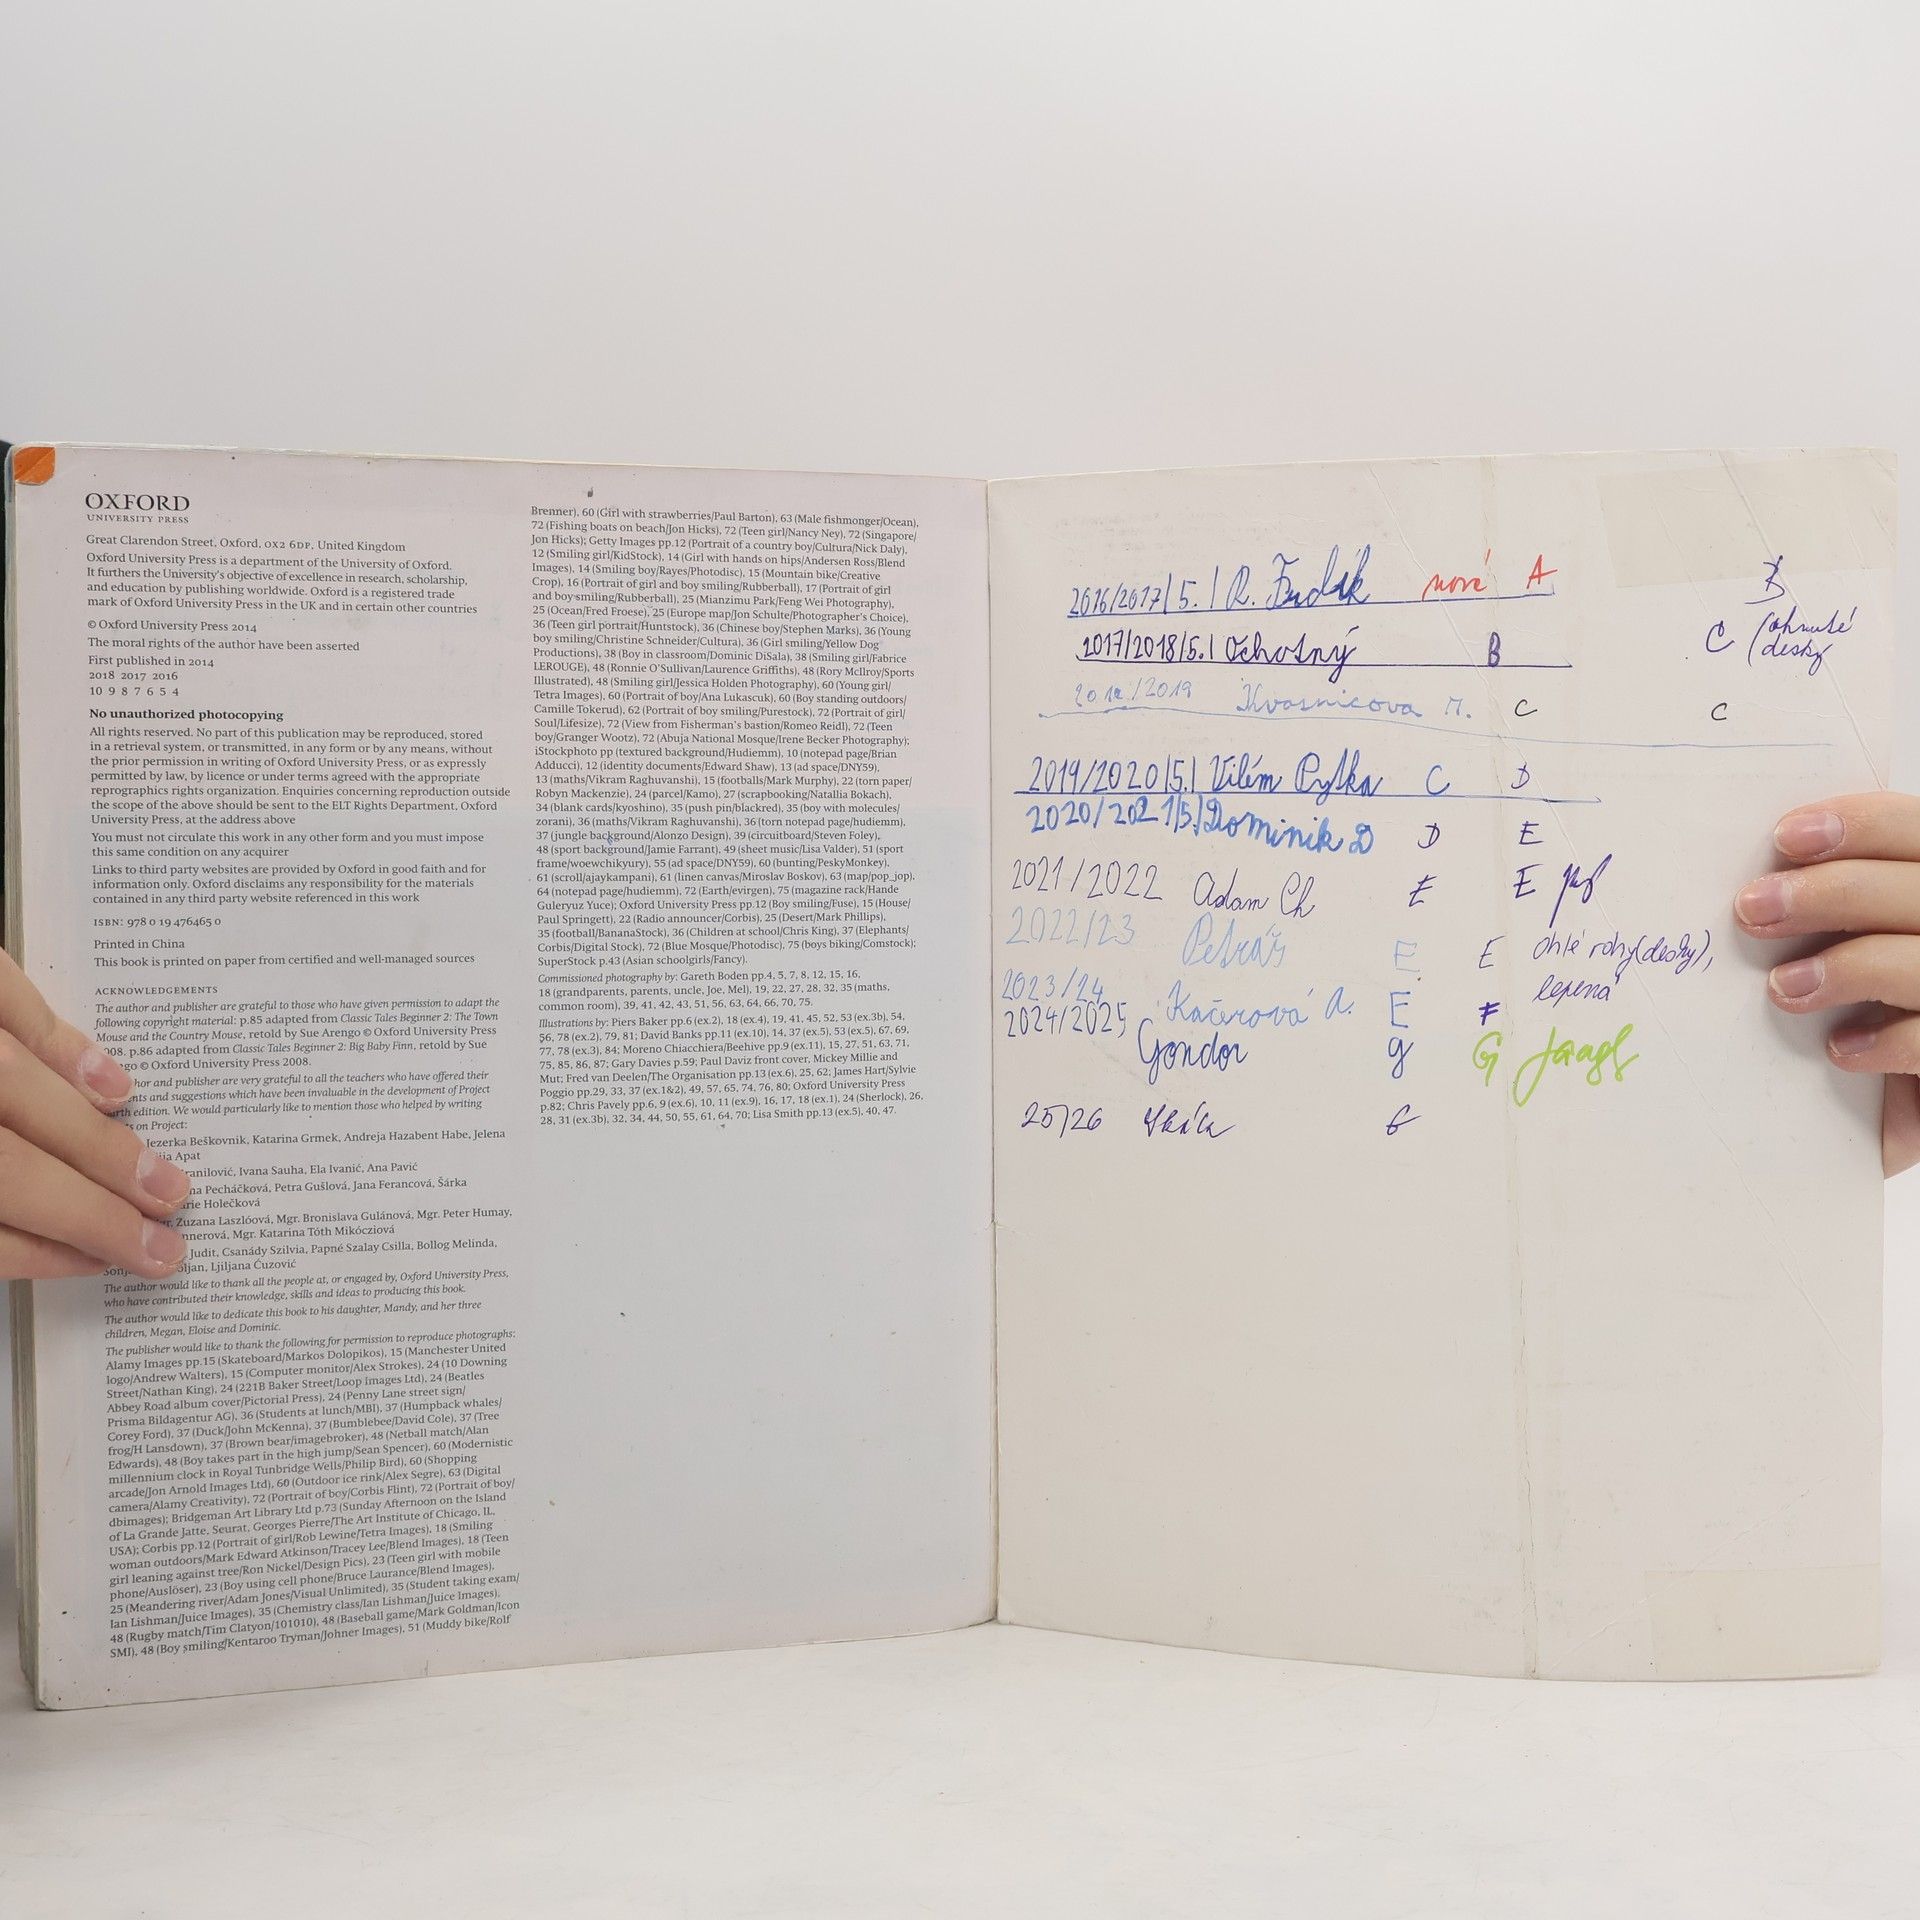 OXFORD
UNIVERSITY PRESS
Great Clarendon Street, Oxford, OX2 6DP, United Kingdom
Oxford University Press is a department of the University of Oxford.
It furthers the University's objective of excellence in research, scholarship,
and education by publishing worldwide. Oxford is a registered trade
mark of Oxford University Press in the UK and in certain other countries
© Oxford University Press 2014
The moral rights of the author have been asserted
First published in 2014
2018 2017 2016
10 9 8 7 6 5 4
No unauthorized photocopying
All rights reserved. No part of this publication may be reproduced, stored
in a retrieval system, or transmitted, in any form or by any means, without
the prior permission in writing of Oxford University Press, or as expressly
permitted by law, by licence or under terms agreed with the appropriate
reprographics rights organization. Enquiries concerning reproduction outside
the scope of the above should be sent to the ELT Rights Department, Oxford
University Press, at the address above
You must not circulate this work in any other form and you must impose
this same condition on any acquirer
Links to third party websites are provided by Oxford in good faith and for
information only. Oxford disclaims any responsibility for the materials
contained in any third party website referenced in this work
ISBN: 978 0 19 476465 0
Printed in China
This book is printed on paper from certified and well-managed sources
ACKNOWLEDGEMENTS
The author and publisher are grateful to those who have given permission to adapt the
following copyright material: p.85 adapted from Classic Tales Beginner 2: The Town
Mouse and the Country Mouse, retold by Sue Arengo © Oxford University Press
008. p.86 adapted from Classic Tales Beginner 2: Big Baby Finn, retold by Sue
go © Oxford University Press 2008.
hor and publisher are very grateful to all the teachers who have offered their
nts and suggestions which have been invaluable in the development of Project
urth edition. We would particularly like to mention those who helped by writing
s on Project:
Jezerka Beškovnik, Katarina Grmek, Andreja Hazabent Habe, Jelena
ija Apat
ranilović, Ivana Sauha, Ela Ivanić, Ana Pavić
na Pecháčková, Petra Gušlová, Jana Ferancová, Šárka
rie Holečková
Zuzana Laszlóová, Mgr. Bronislava Gulánová, Mgr. Peter Humay,
nnerová, Mgr. Katarina Tóth Mikócziová
Judit, Csanády Szilvia, Papné Szalay Csilla, Bollog Melinda,
Sonj oljan, Ljiljana Ćuzović
The author would like to thank all the people at, or engaged by, Oxford University Press,
who have contributed their knowledge, skills and ideas to producing this book.
The author would like to dedicate this book to his daughter, Mandy, and her three
children, Megan, Eloise and Dominic.
The publisher would like to thank the following for permission to reproduce photographs:
Alamy Images pp.15 (Skateboard/Markos Dolopikos), 15 (Manchester United
logo/Andrew Walters), 15 (Computer monitor/Alex Strokes), 24 (10 Downing
Street/Nathan King), 24 (221B Baker Street/Loop Images Ltd), 24 (Beatles
Abbey Road album cover/Pictorial Press), 24 (Penny Lane street sign/
Prisma Bildagentur AG), 36 (Students at lunch/MBI), 37 (Humpback whales/
Corey Ford), 37 (Duck/John McKenna), 37 (Bumblebee/David Cole), 37 (Tree
frog/H Lansdown), 37 (Brown bear/imagebroker), 48 (Netball match/Alan
Edwards), 48 (Boy takes part in the high jump/Sean Spencer), 60 (Modernistic
millennium clock in Royal Tunbridge Wells/Philip Bird), 60 (Shopping
arcade/Jon Arnold Images Ltd), 60 (Outdoor ice rink/Alex Segre), 63 (Digital
camera/Alamy Creativity), 72 (Portrait of boy/Corbis Flint), 72 (Portrait of boy/
dbimages); Bridgeman Art Library Ltd p.73 (Sunday Afternoon on the Island
of La Grande Jatte, Seurat, Georges Pierre/The Art Institute of Chicago, IL,
USA); Corbis pp.12 (Portrait of girl/Rob Lewine/Tetra Images), 18 (Smiling
woman outdoors/Mark Edward Atkinson/Tracey Lee/Blend Images), 18 (Teen
girl leaning against tree/Ron Nickel/Design Pics), 23 (Teen girl with mobile
phone/Auslöser), 23 (Boy using cell phone/Bruce Laurance/Blend Images),
25 (Meandering river/Adam Jones/Visual Unlimited), 35 (Student taking exam/
Ian Lishman/Juice Images), 35 (Chemistry class/Ian Lishman/Juice Images),
48 (Rugby match/Tim Clatyon/101010), 48 (Baseball game/Mark Goldman/Icon
SMI), 48 (Boy smiling/Kentaroo Tryman/Johner Images), 51 (Muddy bike/Rolf
Brenner), 60 (Girl with strawberries/Paul Barton), 63 (Male fishmonger/Ocean),
72 (Fishing boats on beach/Jon Hicks), 72 (Teen girl/Nancy Ney), 72 (Singapore/
Jon Hicks); Getty Images pp.12 (Portrait of a country boy/Cultura/Nick Daly),
12 (Smiling girl/KidStock), 14 (Girl with hands on hips/Andersen Ross/Blend
Images), 14 (Smiling boy/Rayes/Photodisc), 15 (Mountain bike/Creative
Crop), 16 (Portrait of girl and boy smiling/Rubberball), 17 (Portrait of girl
and boy smiling/Rubberball), 25 (Mianzimu Park/Feng Wei Photography),
25 (Ocean/Fred Froese), 25 (Europe map/Jon Schulte/Photographer's Choice),
36 (Teen girl portrait/Huntstock), 36 (Chinese boy/Stephen Marks), 36 (Young
boy smiling/Christine Schneider/Cultura), 36 (Girl smiling/Yellow Dog
Productions), 38 (Boy in classroom/Dominic DiSala), 38 (Smiling girl/Fabrice
LEROUGE), 48 (Ronnie O'Sullivan/Laurence Griffiths), 48 (Rory McIlroy/Sports
Illustrated), 48 (Smiling girl/Jessica Holden Photography), 60 (Young girl/
Tetra Images), 60 (Portrait of boy/Ana Lukascuk), 60 (Boy standing outdoors/
Camille Tokerud), 62 (Portrait of boy smiling/Purestock), 72 (Portrait of girl/
Soul/Lifesize), 72 (View from Fisherman's bastion/Romeo Reidl), 72 (Teen
boy/Granger Wootz), 72 (Abuja National Mosque/Irene Becker Photography);
iStockphoto pp (textured background/Hudiemm), 10 (notepad page/Brian
Adducci), 12 (identity documents/Edward Shaw), 13 (ad space/DNY59),
13 (maths/Vikram Raghuvanshi), 15 (footballs/Mark Murphy), 22 (torn paper/
Robyn Mackenzie), 24 (parcel/Kamo), 27 (scrapbooking/Natallia Bokach),
34 (blank cards/kyoshino), 35 (push pin/blackred), 35 (boy with molecules/
zorani), 36 (maths/Vikram Raghuvanshi), 36 (torn notepad page/hudiemm),
37 (jungle background/Alonzo Design), 39 (circuitboard/Steven Foley),
48 (sport background/Jamie Farrant), 49 (sheet music/Lisa Valder), 51 (sport
frame/woewchikyury), 55 (ad space/DNY59), 60 (bunting/PeskyMonkey),
61 (scroll/ajaykampani), 61 (linen canvas/Miroslav Boskov), 63 (map/pop_jop),
64 (notepad page/hudiemm), 72 (Earth/evirgen), 75 (magazine rack/Hande
Guleryuz Yuce); Oxford University Press pp.12 (Boy smiling/Fuse), 15 (House/
Paul Springett), 22 (Radio announcer/Corbis), 25 (Desert/Mark Phillips),
35 (football/BananaStock), 36 (Children at school/Chris King), 37 (Elephants/
Corbis/Digital Stock), 72 (Blue Mosque/Photodisc), 75 (boys biking/Comstock);
SuperStock p.43 (Asian schoolgirls/Fancy).
Commissioned photography by: Gareth Boden pp.4, 5, 7, 8, 12, 15, 16,
18 (grandparents, parents, uncle, Joe, Mel), 19, 22, 27, 28, 32, 35 (maths,
common room), 39, 41, 42, 43, 51, 56, 63, 64, 66, 70, 75.
Illustrations by: Piers Baker pp.6 (ex.2), 18 (ex.4), 19, 41, 45, 52, 53 (ex.3b), 54,
56, 78 (ex.2), 79, 81; David Banks pp.11 (ex.10), 14, 37 (ex.5), 53 (ex.5), 67, 69,
77, 78 (ex.3), 84; Moreno Chiacchiera/Beehive pp.9 (ex.11), 15, 27, 51, 63, 71,
75, 85, 86, 87; Gary Davies p.59; Paul Daviz front cover, Mickey Millie and
Mut; Fred van Deelen/The Organisation pp.13 (ex.6), 25, 62; James Hart/Sylvie
Poggio pp.29, 33, 37 (ex.1&2), 49, 57, 65, 74, 76, 80; Oxford University Press
p.82; Chris Pavely pp.6, 9 (ex.6), 10, 11 (ex.9), 16, 17, 18 (ex.1), 24 (Sherlock), 26,
28, 31 (ex.3b), 32, 34, 44, 50, 55, 61, 64, 70; Lisa Smith pp.13 (ex.5), 40, 47.
2016/2017/5. / R. nové A B
2017/2018/5. / Ochotný B C (ohnuté
desky
2018/2019 Kvasnicova M. C C
2019/2020/5. / Vilém Pytka C D
2020/2021/5. / Dominik D D E
2021/2022 Adam Ch E E
2022/23 Petráš E E ohlé rohy (desky),
lepená
2023/24 Kačerová A. E F
2024/2025 Gondor g G
25/26 6